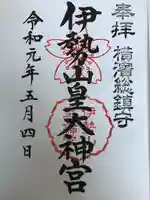 奉拝 横濱総鎮守
伊勢山皇大神宮
令和元年五月四日